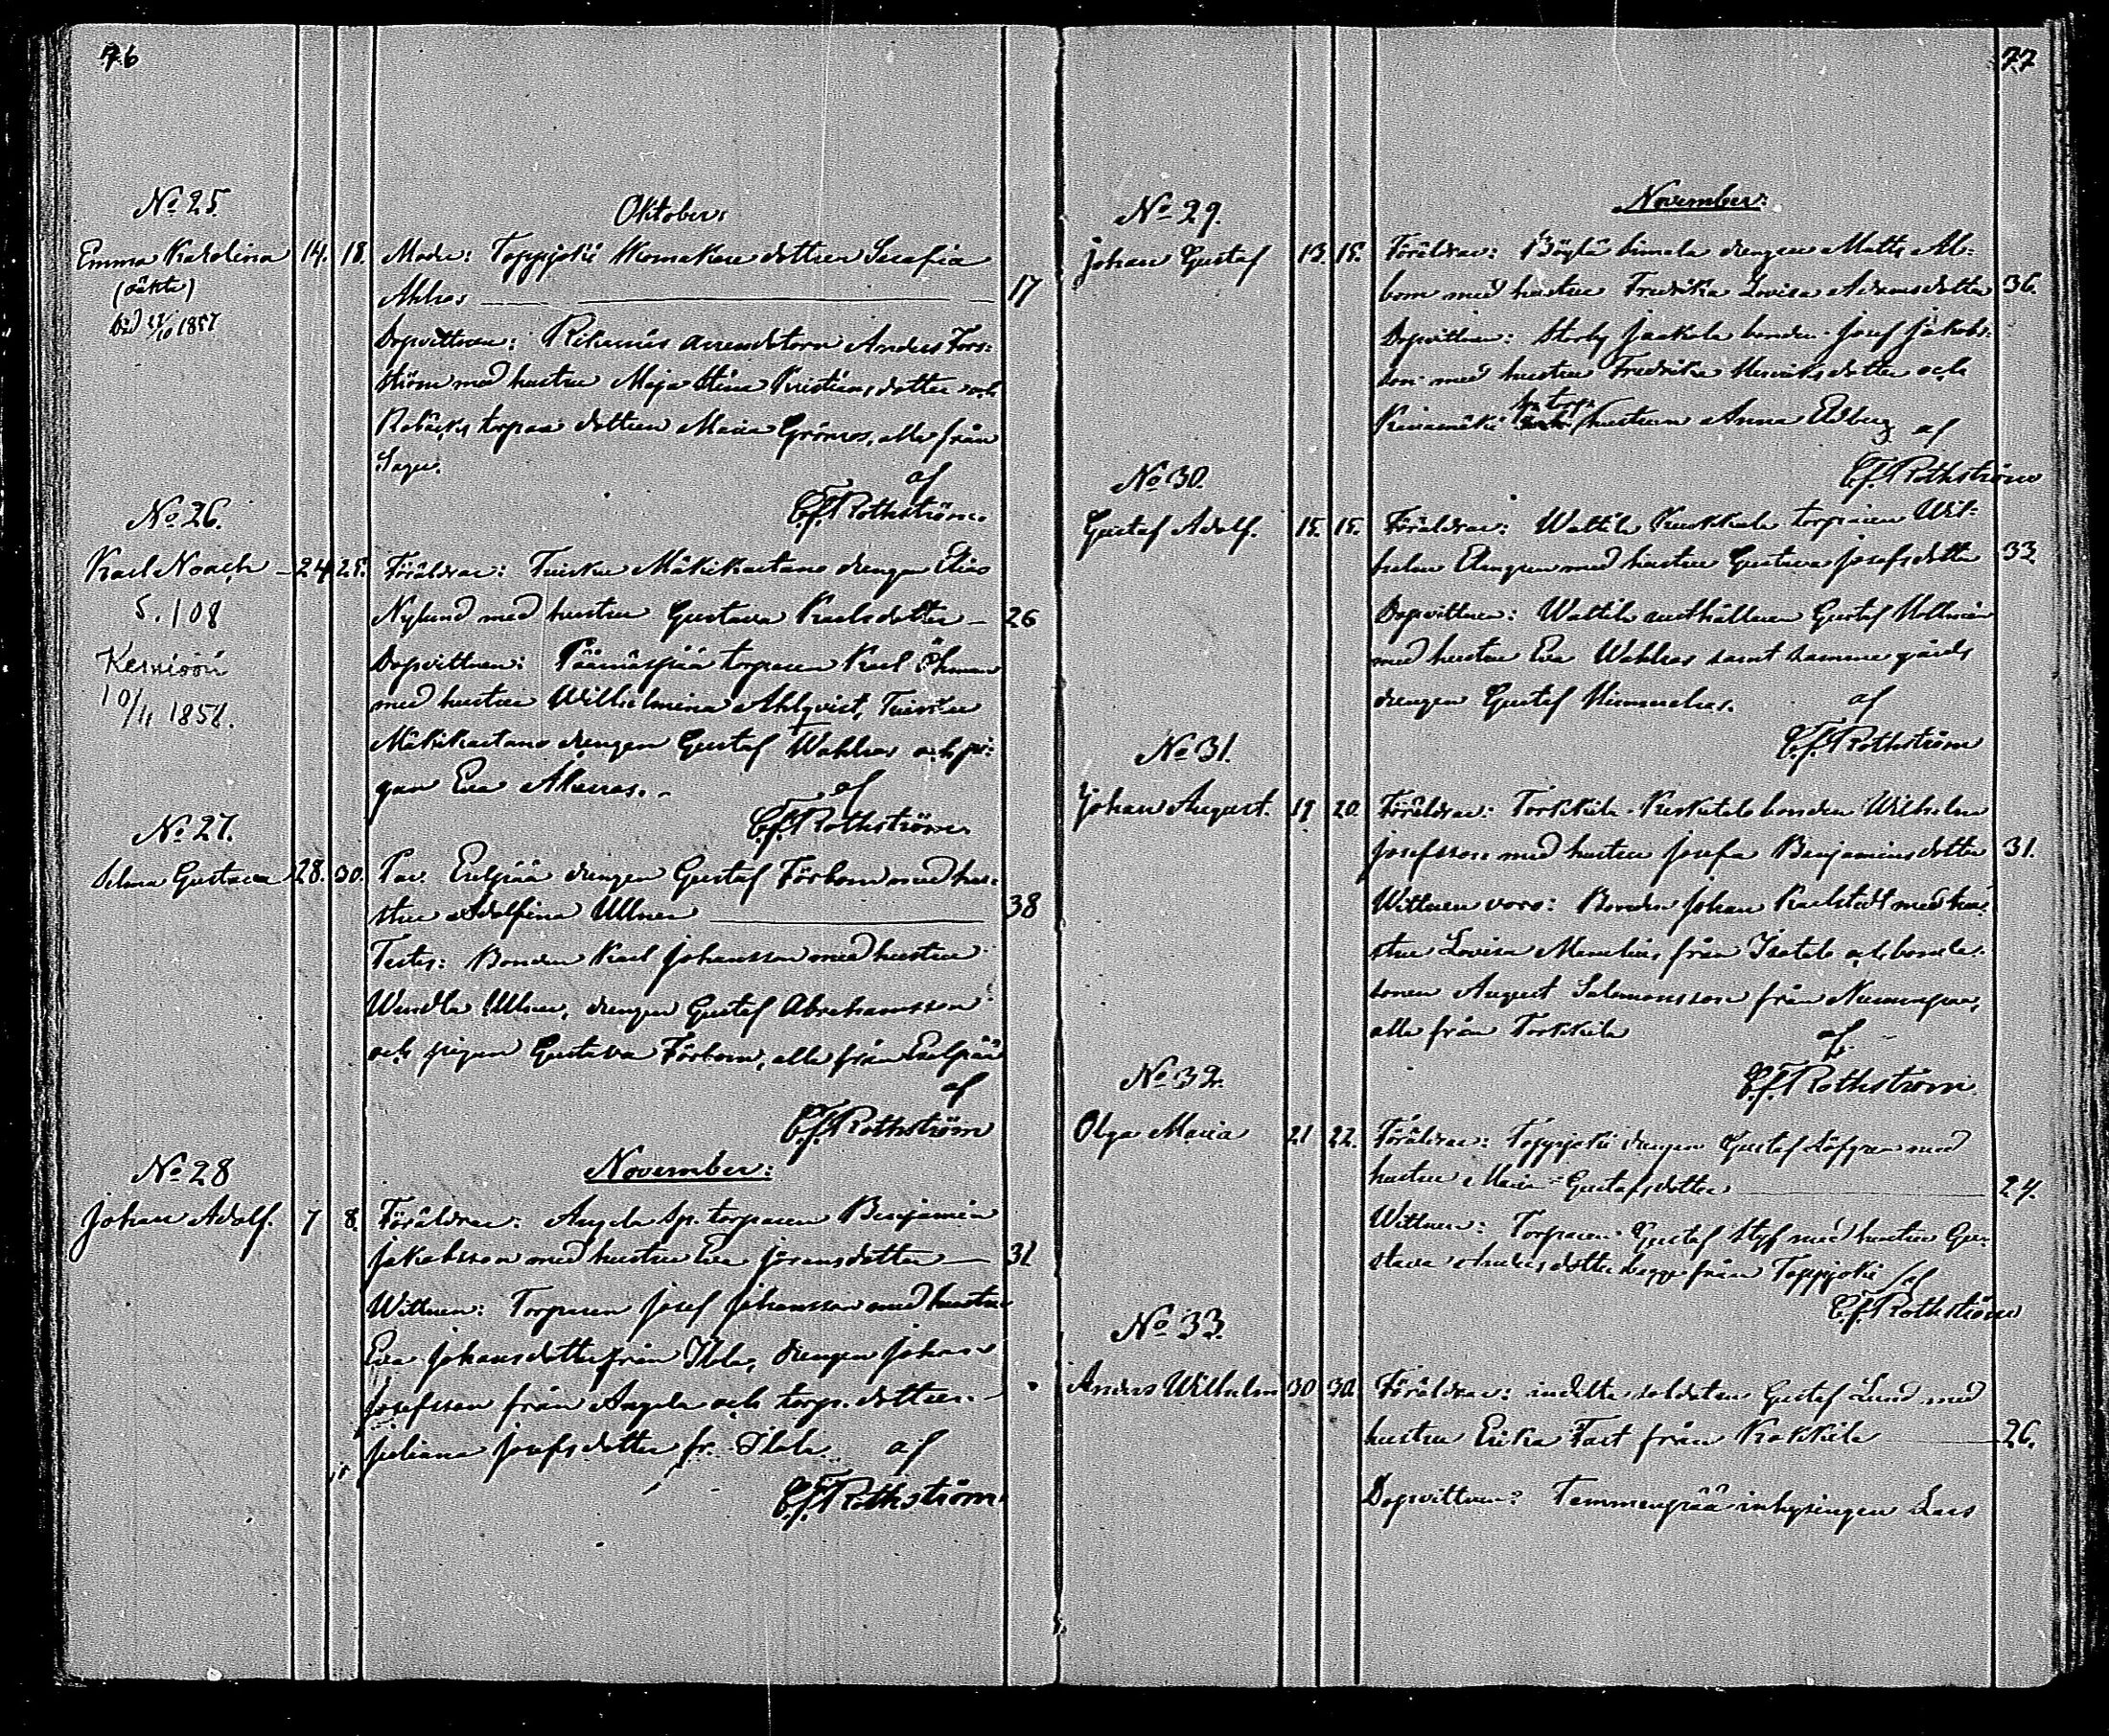 76
Oktober:
No 25.
Emma Karolina 14. 18. Moder: Toppjoki dottren Serafia
(oäkta) Ahlros 17
död 1857
Dopvittnen: arrendatorn Anders Fors-
ström med hustru Maja Stina Kristians dotter och
torpare dottren Maria Grönros, alla från
Sagu.
af
C.F. Rothström.
No 26.
Karl Noach 24 25. Föräldrar: Tuisku Mäkikartano drengen Elias
Nylund med hustru Gustava Karlsdotter 26
5.108
Dopvittnen: Päänäspää torparen Karl Öhman
med hustru Wilhelmina Ahlqvist, Tuisku
Mäkikartano drengen Gustaf Wahlros och pi-
gan Eva
10/11 1858.
af
C.F. Rothström.
No 27.
Selma Gustava 28. 30. Par. Eselpää drengen Gustaf Förbom med hu-
stru Adolfina Ullner 38
Testes: Bonden Karl Johansson med hustru
Wendla Ullner, drengen Gustaf Abrahamsson
och pigan Gustava Förbom, alla från Eselpää
af
C.F. Rothström
November:
No 28
Johan Adolf. 7 8. Föräldrar: Angela Sp. torparen Benjamin
Jakobsson med hustru Eva Jöransdotter 31
Wittnen: Torparen Josef Johansson med hustru
Eva Johansdotter från drengen Johan
Josefsson från Angela och torp. dottren
Juliana Josefsdotter fr.
af
C.F. Rothström
77
November:
No 29.
Johan Gustaf 13. 15. Föräldrar: Böylä Simola drengen Matts Al-
bom med hustru Fredrika Lovisa Adamsdotter 36.
Dopvittnen: Storby Jaakola bonden Josef Jakobs-
son med hustru Fredrika Henriksdotter och
sp. torp.
hustrun Anna Edberg
af
C.F. Rothström
No 30.
Gustaf Adolf. 15. 15. Föräldrar: Waltila torparen Wil-
helm med hustru Gustava Josefsdotter 33
Dopvittnen: Waltila rusthållaren Gustaf
med hustru Eva Wahlros samt samma gårds
drengen Gustaf
af
C.F. Rothström
No 31.
Johan August. 19 20. Föräldrar: Torkkila Keskitalo bonden Wilhelm
Josefsson med hustru Josefa Benjaminsdotter 31.
Wittnen voro: Bonden Johan Karlstedt med hu-
stru Lovisa från Isotalo och bonde-
sonen August Salomonsson från
alla från Torkkila
af
C.F. Rothström.
No 32.
Olga Maria 21 22. Föräldrar: Toppjoki drengen Gustaf Löfgren med
hustru Maria Gustafsdotter 24.
Wittnen: Torparen Gustaf Styf med hustru Gu-
stava Andersdotter begge från Toppjoki
af
C.F. Rothström
No 33.
Anders Wilhelm 30 30. Föräldrar: indelta soldaten Gustaf Lund med
hustru Erika Fast från Kakkila 26.
Dopvittnen: Temmenpää inhysingen Lars